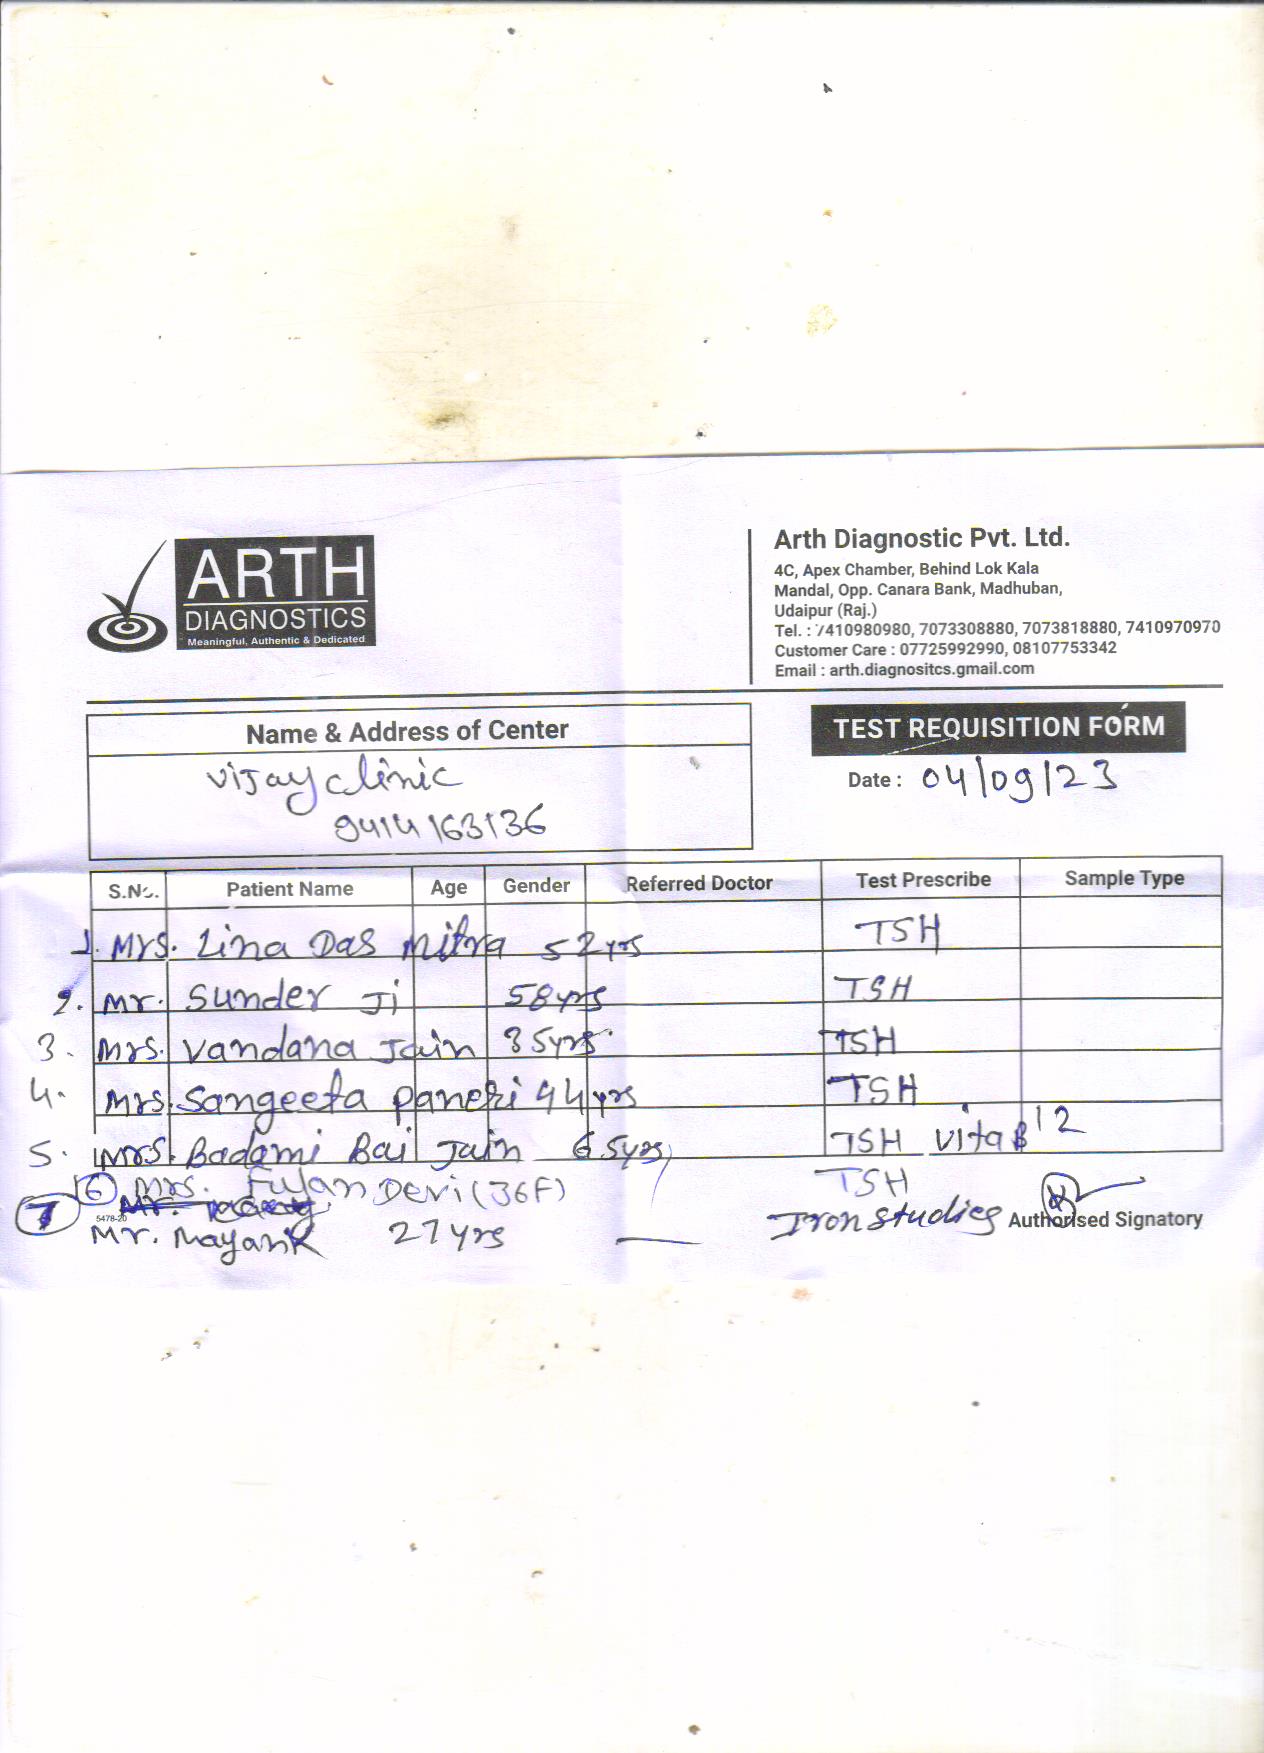 ARTH
DIAGNOSTICS
Meaningful, Authentic & Dedicated
Arth Diagnostic Pvt. Ltd.
4C, Apex Chamber, Behind Lok Kala
Mandal, Opp. Canara Bank, Madhuban,
Udaipur (Raj.)
Tel. : 7410980980, 7073308880, 7073818880, 7410970970
Customer Care : 07725992990, 08107753342
Email : arth.diagnositcs.gmail.com
Name & Address of Center
Vijay clinic
9414163136
TEST REQUISITION FORM
Date : 04/09/23
S.No. Patient Name Age Gender Referred Doctor Test Prescribe Sample Type
1. Mrs. Lina Das Mitra 52yrs TSH
2. Mr. Sunder Ji 58yrs TSH
3. Mrs. Vandana Jain 35yrs. TSH
4. Mrs. Sangeeta Paneri 44yrs TSH
5. Mrs. Badami Bai Jain 65yrs TSH Vita B12
6 Mrs. Fulan Devi (36F) TSH
7 Mr.
5478-20
Mr. Mayank 27yrs Iron studies
Authorised Signatory